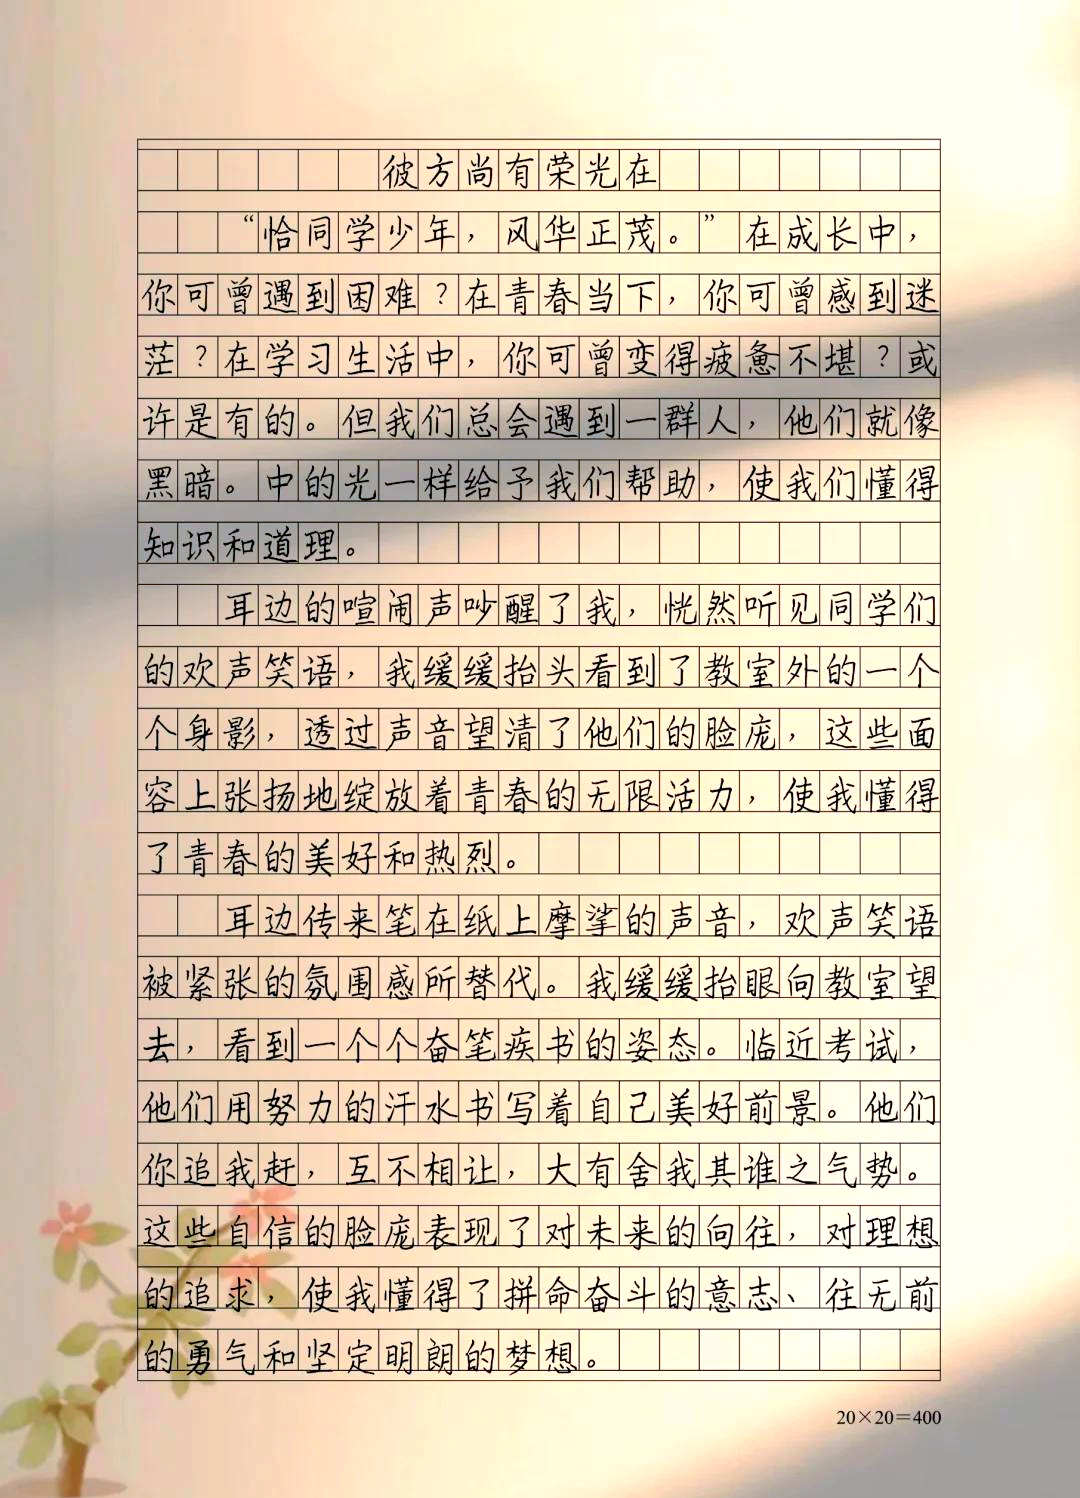 彼方尚有荣光在
“恰同学少年，风华正茂。”在成长中，
你可曾遇到困难？在青春当下，你可曾感到迷
茫？在学习生活中，你可曾变得疲惫不堪？或
许是有的。但我们总会遇到一群人，他们就像
黑暗。中的光一样给予我们帮助，使我们懂得
知识和道理。
耳边的喧闹声吵醒了我，恍然听见同学们
的欢声笑语，我缓缓抬头看到了教室外的一个
个身影，透过声音望清了他们的脸庞，这些面
容上张扬地绽放着青春的无限活力，使我懂得
了青春的美好和热烈。
耳边传来笔在纸上摩挲的声音，欢声笑语
被紧张的氛围感所替代。我缓缓抬眼向教室望
去，看到一个个奋笔疾书的姿态。临近考试，
他们用努力的汗水书写着自己美好前景。他们
你追我赶，互不相让，大有舍我其谁之气势。
这些自信的脸庞表现了对未来的向往，对理想
的追求，使我懂得了拼命奋斗的意志、往无前
的勇气和坚定明朗的梦想。
20×20＝400